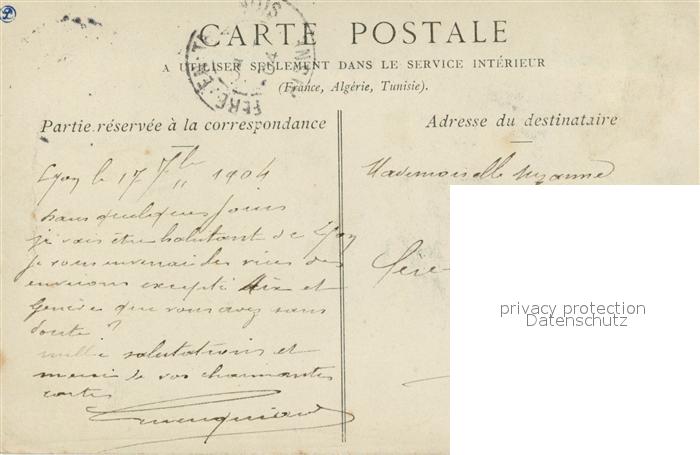 CARTE POSTALE
A UTILISER SEULEMENT DANS LE SERVICE INTÉRIEUR
(France, Algérie, Tunisie).
Partie réservée à la correspondance
Adresse du destinataire
FÈRE-EN-TA
Lyon le 17 7bre 1904
dans quelques jours
je vais être habitant de Lyon
je vous enverrai des vues des
environs excepté Aix et
Genève que vous avez sans
doute ?
mille salutations et
merci de vos charmantes
cartes
Mademoiselle Suzanne
Fère-
privacy protection
Datenschutz